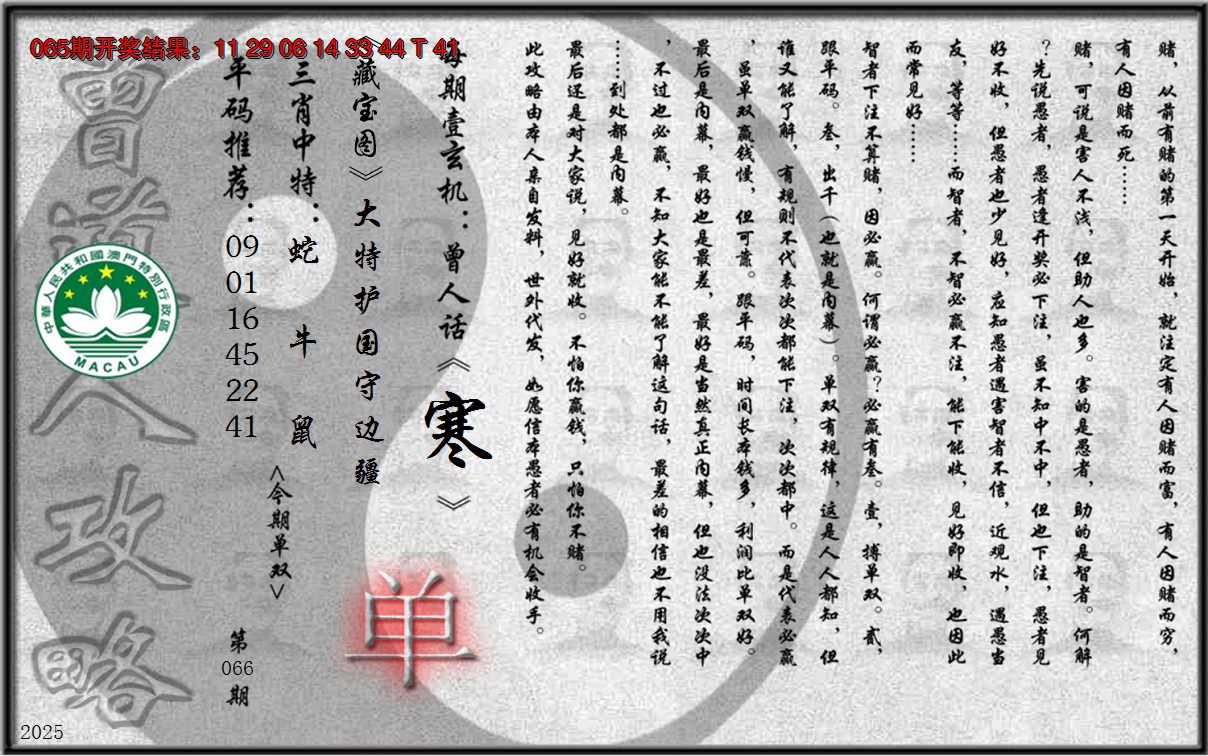 065期开奖结果：11 29 06 14 33 44 T 41
赌，从前有赌的第一天开始，就注定有人因赌而富，有人因赌而穷，
有人因赌而死……
赌，可说是害人不浅，但助人也多。害的是愚者，助的是智者。何解
？先说愚者，愚者逢开奖必下注，虽不知中不中，但也下注，愚者见
好不收，但愚者也少见好，应知愚者遇害智者不信，近观水，遇愚当
友，等等……而智者，不智必赢不注，能下能收，见好即收，也因此
而常见好……
智者下注不算赌，因必赢。何谓必赢？必赢有叁。壹，搏单双。贰，
跟平码。叁，出千（也就是内幕）。单双有规律，这是人人都知，但
谁又能了解，有规则不代表次次都能下注，次次都中。而是代表必赢
，虽单双赢钱慢，但可靠。跟平码，时间长本钱多，利润比单双好。
最后是内幕，最好也是最差，最好是当然真正内幕，但也没法次次中
，不过也必赢，不知大家能不能了解这句话，最差的相信也不用我说
……到处都是内幕。
最后还是对大家说，见好就收。不怕你赢钱，只怕你不赌。
此攻略由本人亲自发料，世外代发，如愿信本愚者必有机会收手。
每期壹玄机：曾人话《寒》
《藏宝图》大特护国守边疆
三肖中特：蛇 牛 鼠
<今期单双>
单
平码推荐：
09
01
16
45
22
41
第
066
期
曾道人攻略
中華人民共和國澳門特別行政區
MACAU
2025